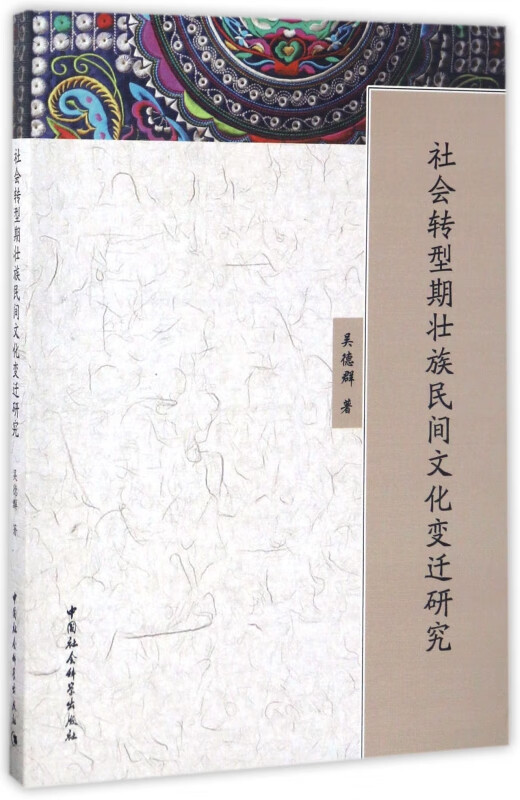 社会转型期壮族民间文化变迁研究
吴德群 著
中国社会科学出版社
社会转型期壮族民间文化变迁研究
吴德群 著
中国社会科学出版社